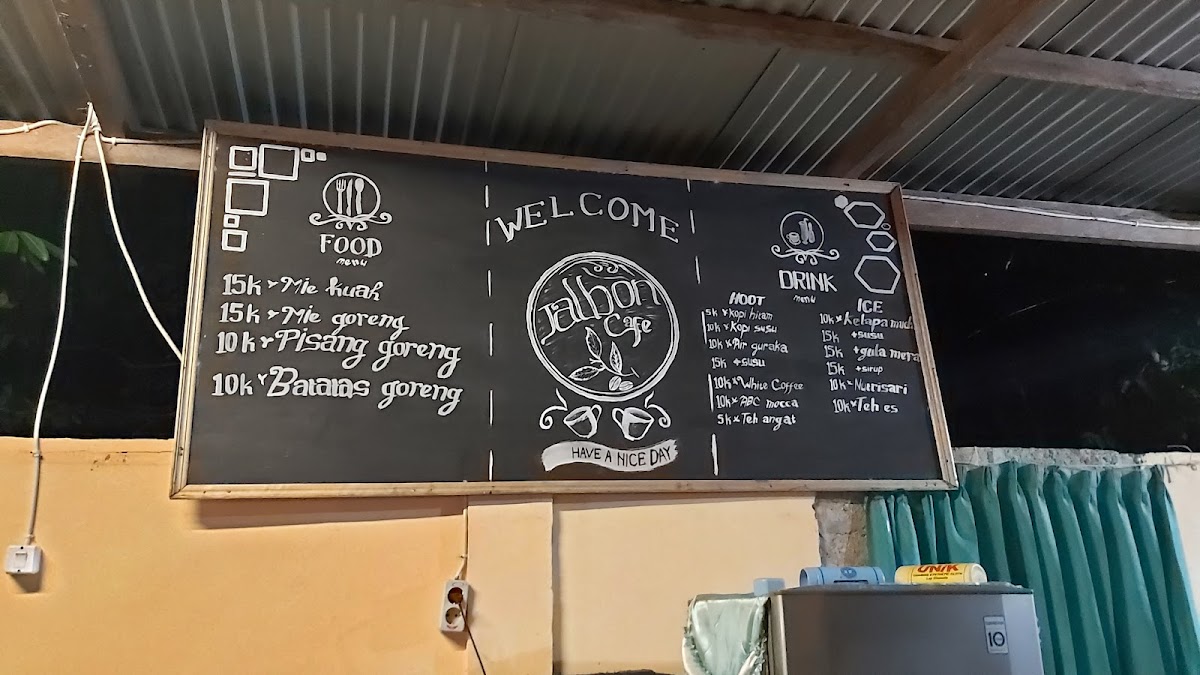 FOOD
menu
15k Mie kuah
15k Mie goreng
10k Pisang goreng
10k Batatas goreng
WELCOME
Jalbon
Cafe
HAVE A NICE DAY
DRINK
menu
HOOT
5k Kopi hitam
10k Kopi susu
10k Air guraka
15k +susu
10k White Coffee
10k ABC mocca
5k Teh angat
ICE
10k kelapa muda
15k +susu
15k +gula mera
15k +sirup
10k Nutrisari
10k Teh es
UNIK
10